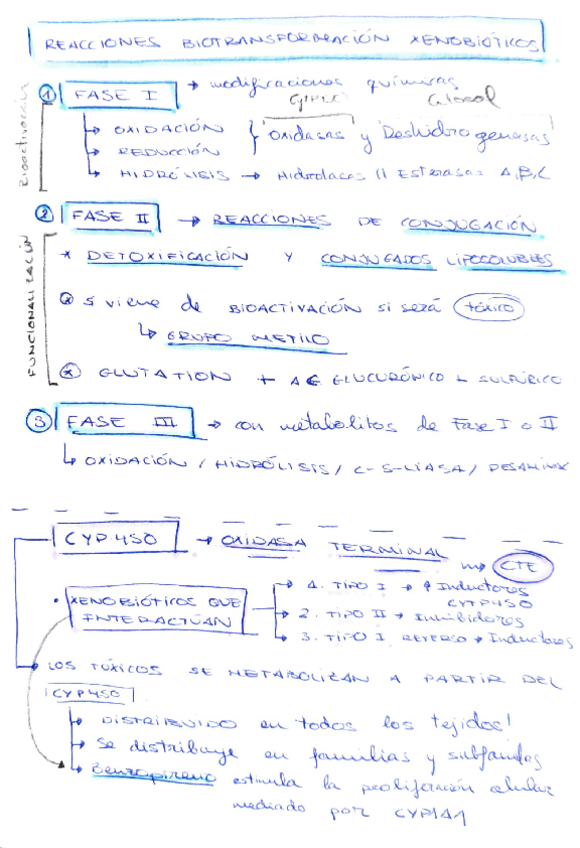 REACCIONES BIOTRANSFORMACIÓN XENOBIÓTICOS
Bioactivación
1 FASE I → modificaciones químicas
Alcohol
↳ OXIDACIÓN } Oxidasas y Deshidrogenasas
↳ REDUCCIÓN
↳ HIDRÓLISIS → Hidrolasas // Esterasas A,B,C
2 FASE II → REACCIONES DE CONJUGACIÓN
FUNCIONALIZACIÓN
* DETOXIFICACIÓN Y CONJUGADOS LIPOSOLUBLES
* S viene de BIOACTIVACIÓN si será tóxico
↳ GRUPO METILO
* GLUTATION + AC GLUCURÓNICO L SULFÚRICO
3 FASE III → con metabolitos de Fase I o II
↳ OXIDACIÓN / HIDRÓLISIS / C-S-LIASA / DESAMINAC
CYP450 → OXIDASA TERMINAL
CTE
• XENOBIÓTICOS QUE INTERACTÚAN
→ 1. TIPO I → Inductores
CYTP450
→ 2. TIPO II → Inhibidores
→ 3. TIPO I REVERSO → Inductores
LOS TÓXICOS SE METABOLIZAN A PARTIR DEL
CYP450
↳ DISTRIBUIDO en todos los tejidos!
→ Se distribuye en familias y subfamilias
→ Benzopireno estimula la proliferación celular
mediado por CYP1A1